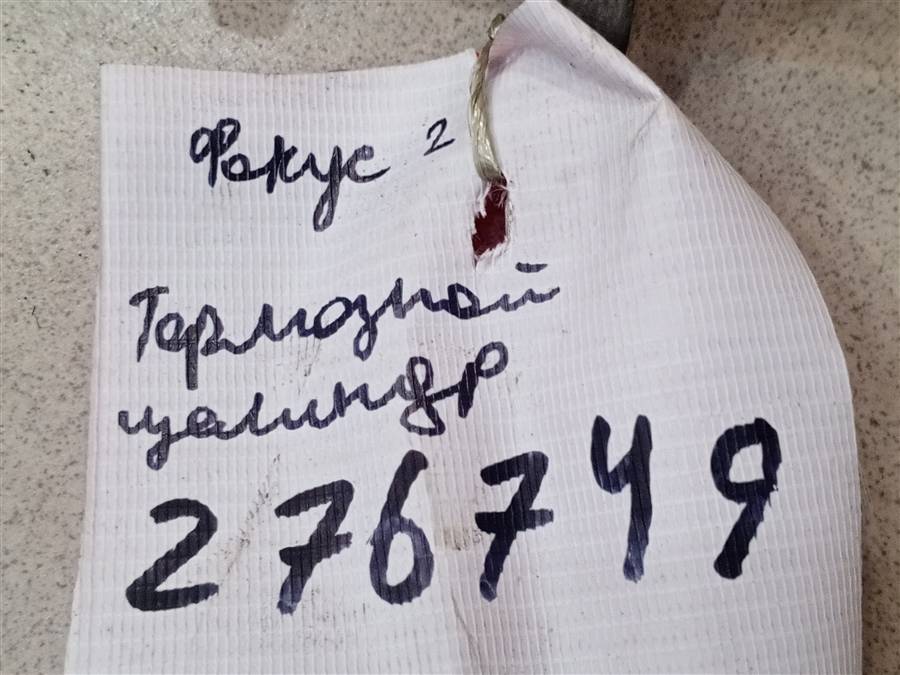 Фокус 2
Тормозной
цалиндр
276749